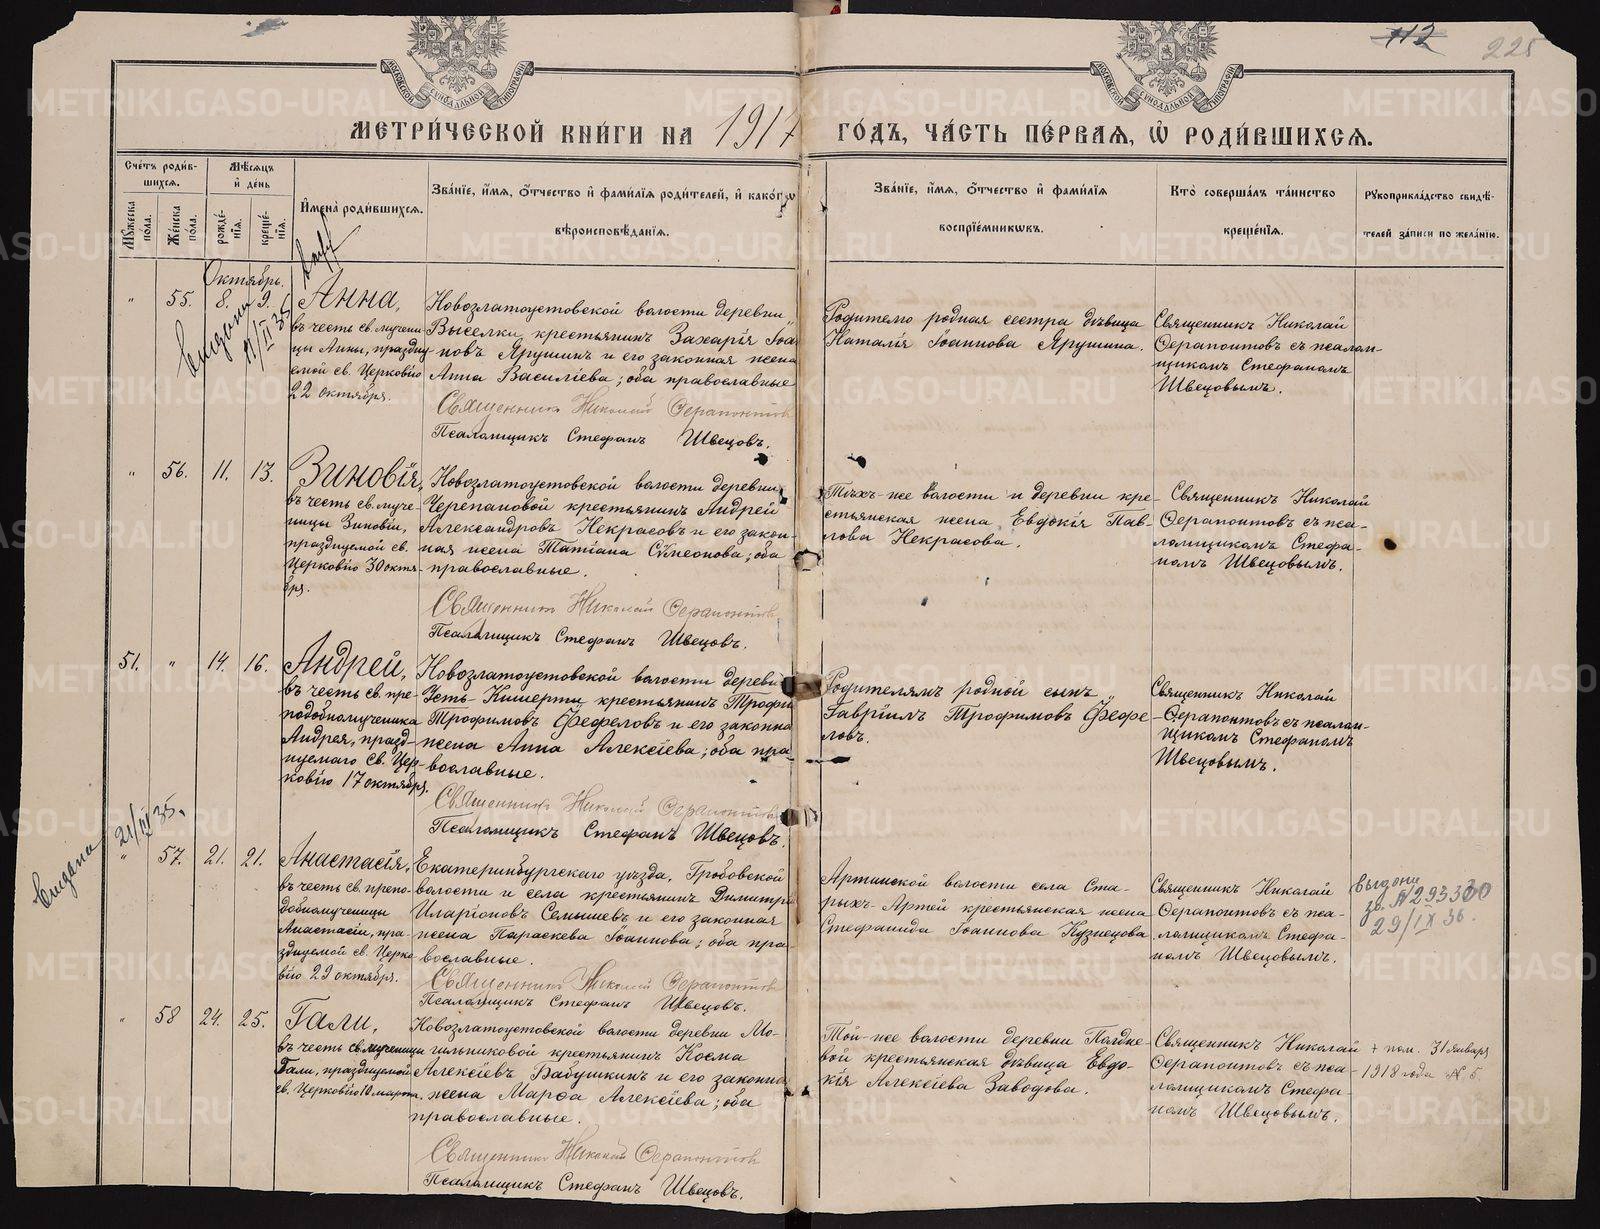 112
225
МОСКОВСКОЙ СѴНОДАЛЬНОЙ ТИПОГРАФІИ
МОСКОВСКОЙ СѴНОДАЛЬНОЙ ТИПОГРАФІИ
МЕТРИ́ЧЕСКОЙ КНИ́ГИ НА 1917 ГО́ДЪ, ЧА́СТЬ ПЕ́РВАЯ, Ѿ РОДИ́ВШИХСѦ.
Сче́тъ роди́в-
шихсѧ.
Мꙋ́жеска по́ла.
Же́нска по́ла.
Мѣ́сѧцъ
и҆ де́нь
рожде́-
нїѧ.
креще́-
нїѧ.
И҆мена̀ роди́вшихсѧ.
Зва́нїе, и҆́мѧ, ѻ҆́тчество и҆ фами́лїѧ роди́телей, и҆ како́гѡ
вѣроисповѣ́данїѧ.
Зва́нїе, и҆́мѧ, ѻ҆́тчество и҆ фами́лїѧ
воспрїе́мникѡвъ.
Кто̀ соверша́лъ та́инство
креще́нїѧ.
Рꙋкоприкла́дство свидѣ́-
телей за́писи по жела́нїю.
Октябрь.
" 55. 8. 9.
Выдана
11/II 35
Анна,
въ честь св. мучени-
цы Анны, праздну
емой св. Церковію
22 октября.
Новозлатоустовской волости деревни
Выселки крестьянинъ Захарія Іоан
новъ Ярушинъ и его законная жена
Анна Василіева; оба православные
Священникъ Николай Ѳерапонтовъ
Псаломщикъ Стефанъ Швецовъ.
Родителю родная сестра дѣвица
Наталія Іоаннова Ярушина.
Священникъ Николай
Ѳерапонтовъ съ псалом-
щикомъ Стефаномъ
Швецовымъ.
" 56. 11. 13.
Зиновія,
въ честь св. муче-
ницы Зиновіи,
празднуемой св.
Церковію 30 октя-
бря.
Новозлатоустовской волости деревни
Черепановой крестьянинъ Андрей
Александровъ Некрасовъ и его закон-
ная жена Татіана Сѵмеонова; оба
православные.
Священникъ Николай Ѳерапонтовъ
Псаломщикъ Стефанъ Швецовъ.
Тѣхъ-же волости и деревни кре-
стьянская жена Евдокія Пав-
лова Некрасова.
Священникъ Николай
Ѳерапонтовъ съ пса-
ломщикомъ Стефа-
номъ Швецовымъ.
51. " 14. 16.
Андрей,
въ честь св. пре-
подобномученика
Андрея, празд-
нуемаго св. Цер-
ковію 17 октября.
Новозлатоустовской волости деревни
Усть-Кишерти крестьянинъ Трофим
Трофимовъ Фефеловъ и его законна
жена Анна Алексіева; оба пра
вославные.
Священникъ Николай Ѳерапонтовъ
Псаломщикъ Стефанъ Швецовъ.
Родителямъ родной сынъ
Гавріилъ Трофимовъ Фефе
ловъ.
Священникъ Николай
Ѳерапонтовъ съ псалом-
щикомъ Стефаномъ
Швецовымъ.
Выдана 21/IV 35.
" 57. 21. 21.
Анастасія,
въ честь св. препо-
добномученицы
Анастасіи, пра-
зднуемой св. Церко
вію 29 октября.
Екатеринбургскаго уѣзда, Гробовской
волости и села крестьянинъ Димитрі
Иларіоновъ Семышевъ и его законная
жена Параскева Іоаннова; оба пра-
вославные.
Священникъ Николай Ѳерапонтовъ
Псаломщикъ Стефанъ Швецовъ.
Артинской волости села Ста-
рыхъ-Артей крестьянская жена
Стефанида Іоаннова Кузнецова
Священникъ Николай
Ѳерапонтовъ съ пса-
ломщикомъ Стефа-
номъ Швецовымъ.
29/IX 36.
" 58 24. 25.
Гали,
въ честь св. мученицы
Гали, празднуемой
св. Церковію 10 марта.
Новозлатоустовской волости деревни Мо-
гильниковой крестьянинъ Косма
Алексіевъ Бабушкинъ и его законна
жена Марѳа Алексіева; оба
православные.
Священникъ Николай Ѳерапонтовъ
Псаломщикъ Стефанъ Швецовъ.
Той-же волости деревни Полдне-
вой крестьянская дѣвица Евдо-
кія Алексіева Заводова.
Священникъ Николай
Ѳерапонтовъ съ пса-
ломщикомъ Стефа-
номъ Швецовымъ.
+ пом. 31 января
1918 года № 5.
METRIKI.GASO-URAL.RU